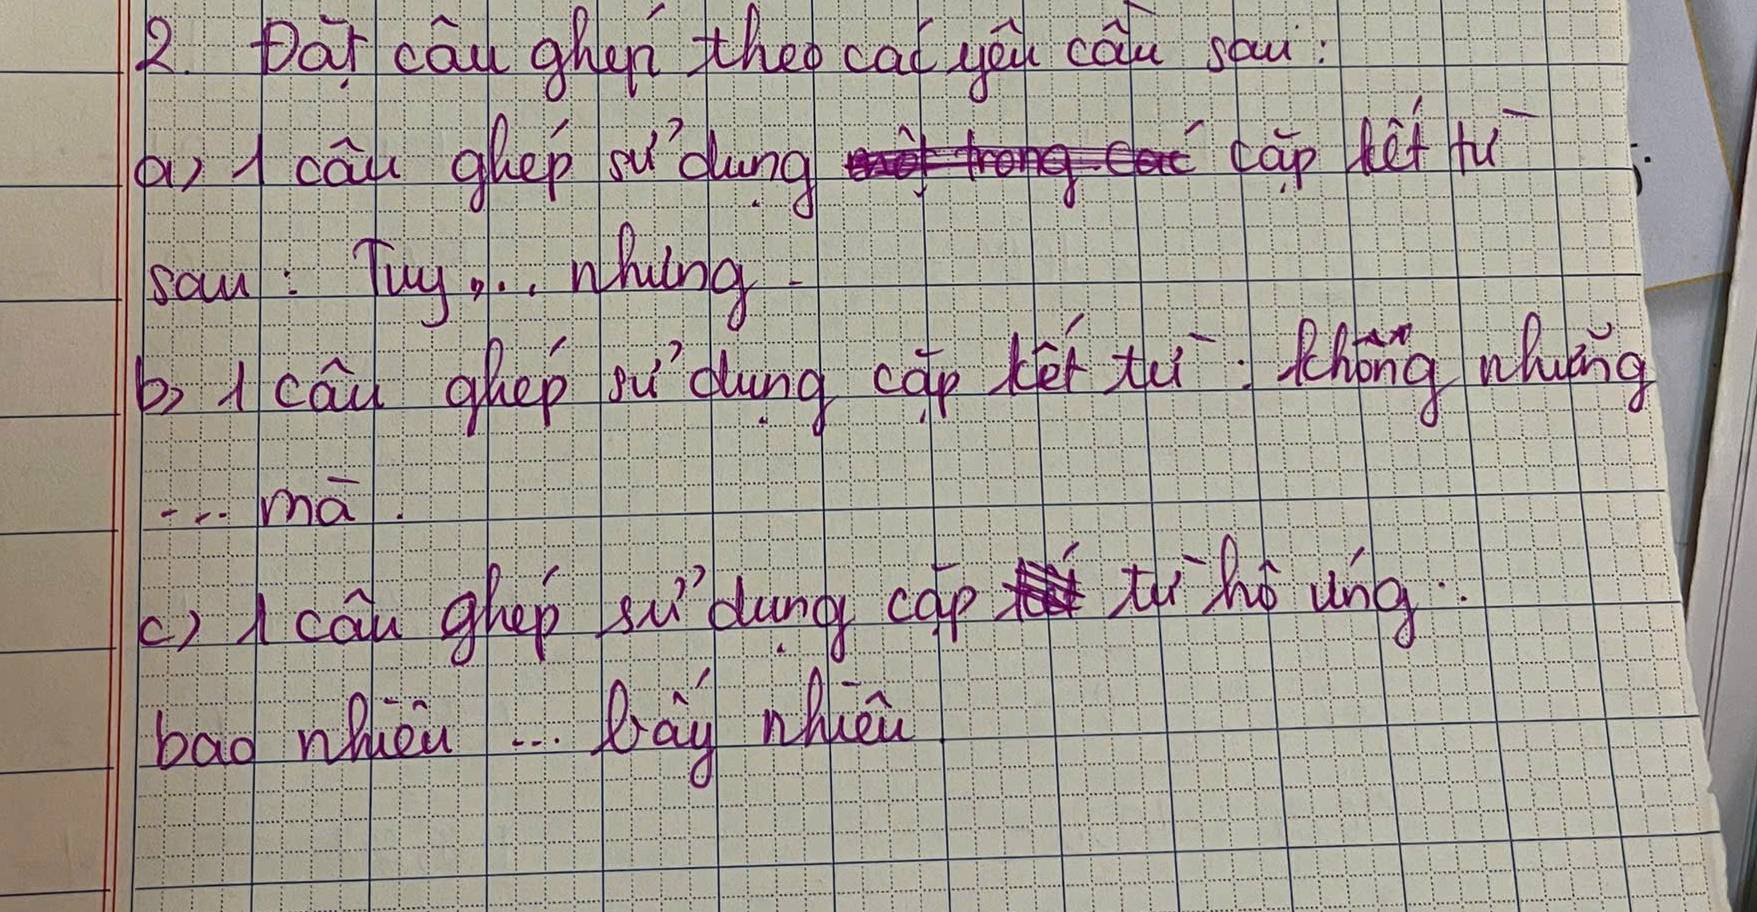 2. Đặt câu ghép theo các yêu cầu sau:
a) 1 câu ghép sử dụng cặp kết từ
sau: Tuy,... nhưng.
b) 1 câu ghép sử dụng cặp kết từ: không những
.... mà.
c) 1 câu ghép sử dụng cặp từ hô ứng:
bao nhiêu ... bấy nhiêu